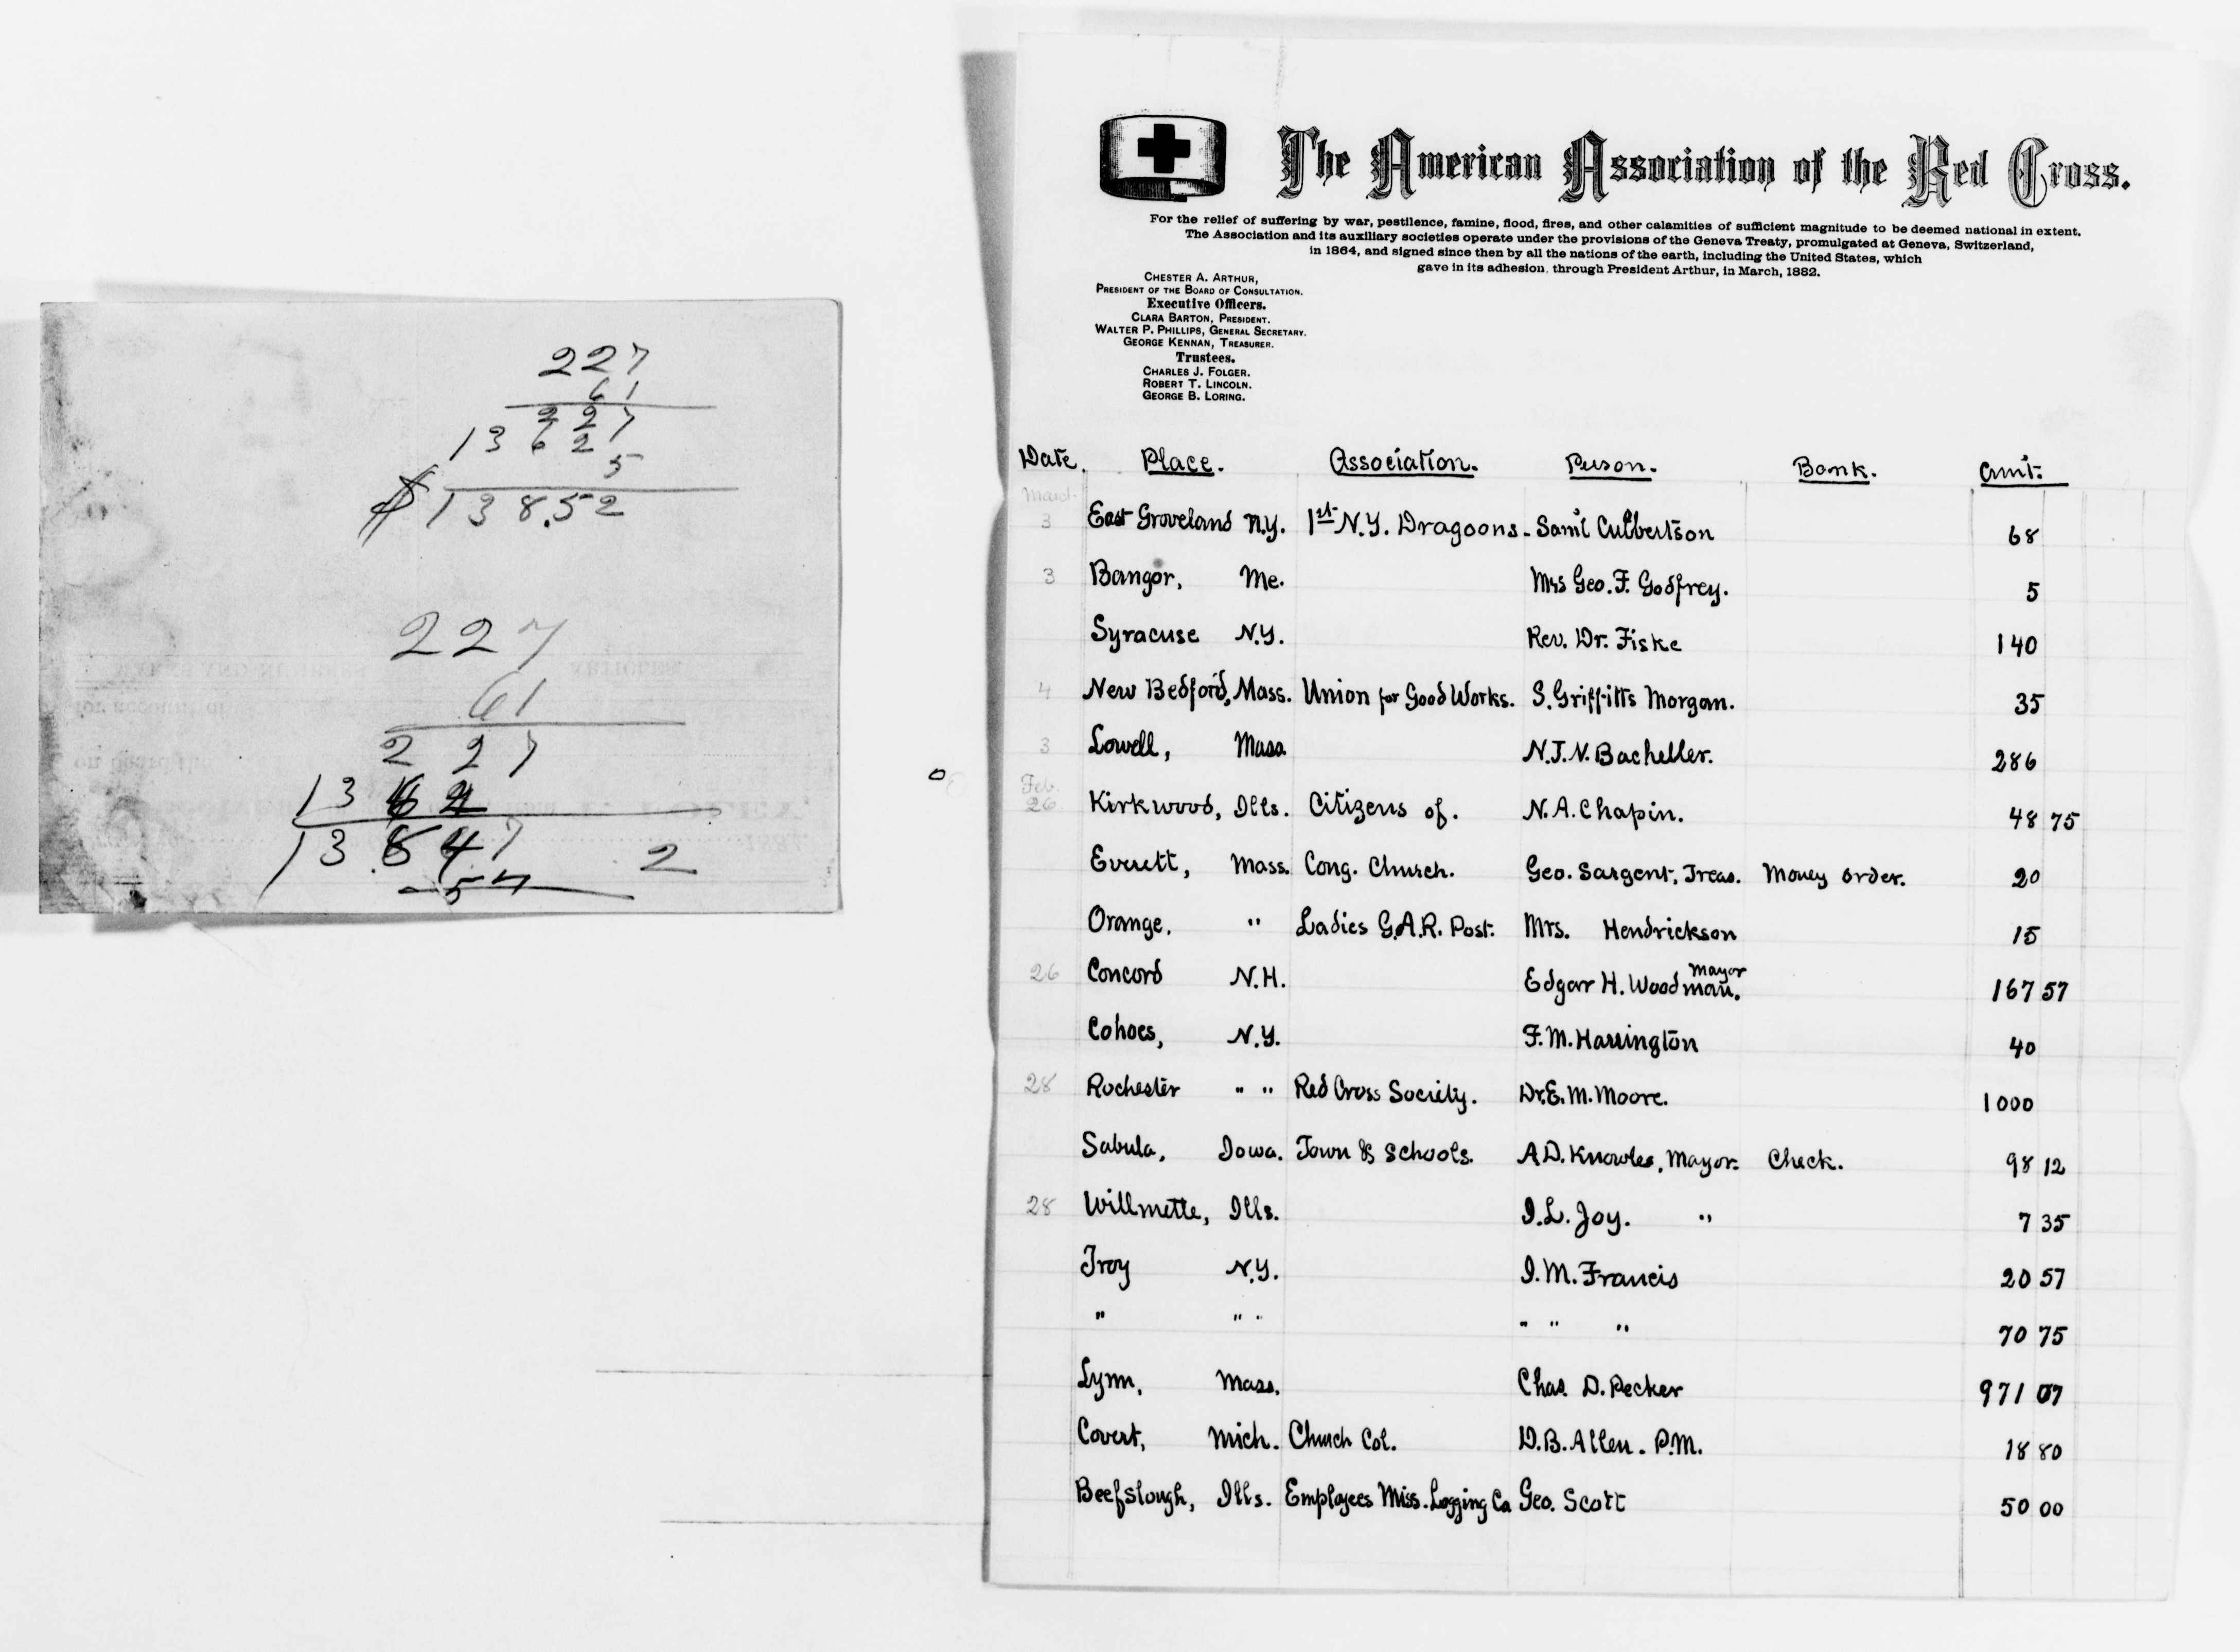 227
61
227
1362
5
$138.52
227
61
2 27
1362
13.847
54
2
The American Association of the Red Cross.
For the relief of suffering by war, pestilence, famine, flood, fires, and other calamities of sufficient magnitude to be deemed national in extent.
The Association and its auxiliary societies operate under the provisions of the Geneva Treaty, promulgated at Geneva, Switzerland,
in 1864, and signed since then by all the nations of the earth, including the United States, which
gave in its adhesion, through President Arthur, in March, 1882.
CHESTER A. ARTHUR,
PRESIDENT OF THE BOARD OF CONSULTATION.
Executive Officers.
CLARA BARTON, PRESIDENT.
WALTER P. PHILLIPS, GENERAL SECRETARY.
GEORGE KENNAN, TREASURER.
Trustees.
CHARLES J. FOLGER.
ROBERT T. LINCOLN.
GEORGE B. LORING.
Date. Place. Association. Person. Bank. Amt.
March
3 East Groveland N.Y. 1st N.Y. Dragoons. Saml Culbertson 68
3 Bangor, Me. Mrs Geo. F. Godfrey. 5
Syracuse N.Y. Rev. Dr. Fiske 140
4 New Bedford, Mass. Union for Good Works. S. Griffitts Morgan. 35
3 Lowell, Mass N.J.N. Bacheller. 286
Feb.
26 Kirkwood, Ills. Citizens of. N.A. Chapin. 48 75
Everett, Mass. Cong. Church. Geo. Sargent, Treas. Money order. 20
Orange, " Ladies G.A.R. Post. Mrs. Hendrickson 15
26 Concord N.H. Edgar H. Woodman. Mayor 167 57
Cohoes, N.Y. F.M. Harrington 40
28 Rochester " " Red Cross Society. Dr. E.M. Moore. 1000
Sabula, Iowa. Town & Schools. A.D. Knowles, Mayor. Check. 98 12
28 Willmette, Ills. I.L. Joy. " 7 35
Troy N.Y. I.M. Francis 20 57
" " " " " " 70 75
Lynn, Mass. Chas. D. Pecker 971 07
Covert, Mich. Church Col. D.B. Allen. P.M. 18 80
Beefslough, Ills. Employees Miss. Logging Co Geo. Scott 50 00